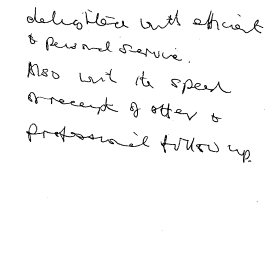 delighted with efficient
& personal service.
Also with the speed
of receipt of offer &
professional follow up.